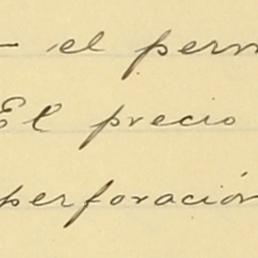 - el perm
El precio
perforación